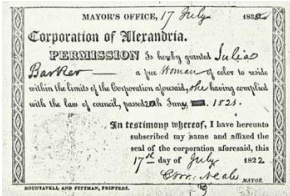 MAYOR'S OFFICE, 17 July 1822
Corporation of Alexandria.
PERMISSION Is hereby granted Julia
Barker — a free Woman of color to reside
within the limits of the Corporation aforesaid, she having complied
with the law of council, passed June 1821.
In testimony whereof, I have hereunto
subscribed my name and affixed the
seal of the corporation aforesaid, this
17th day of July 1822
Neale
MAYOR.
ROUNTAVELL AND PITTMAN, PRINTERS.